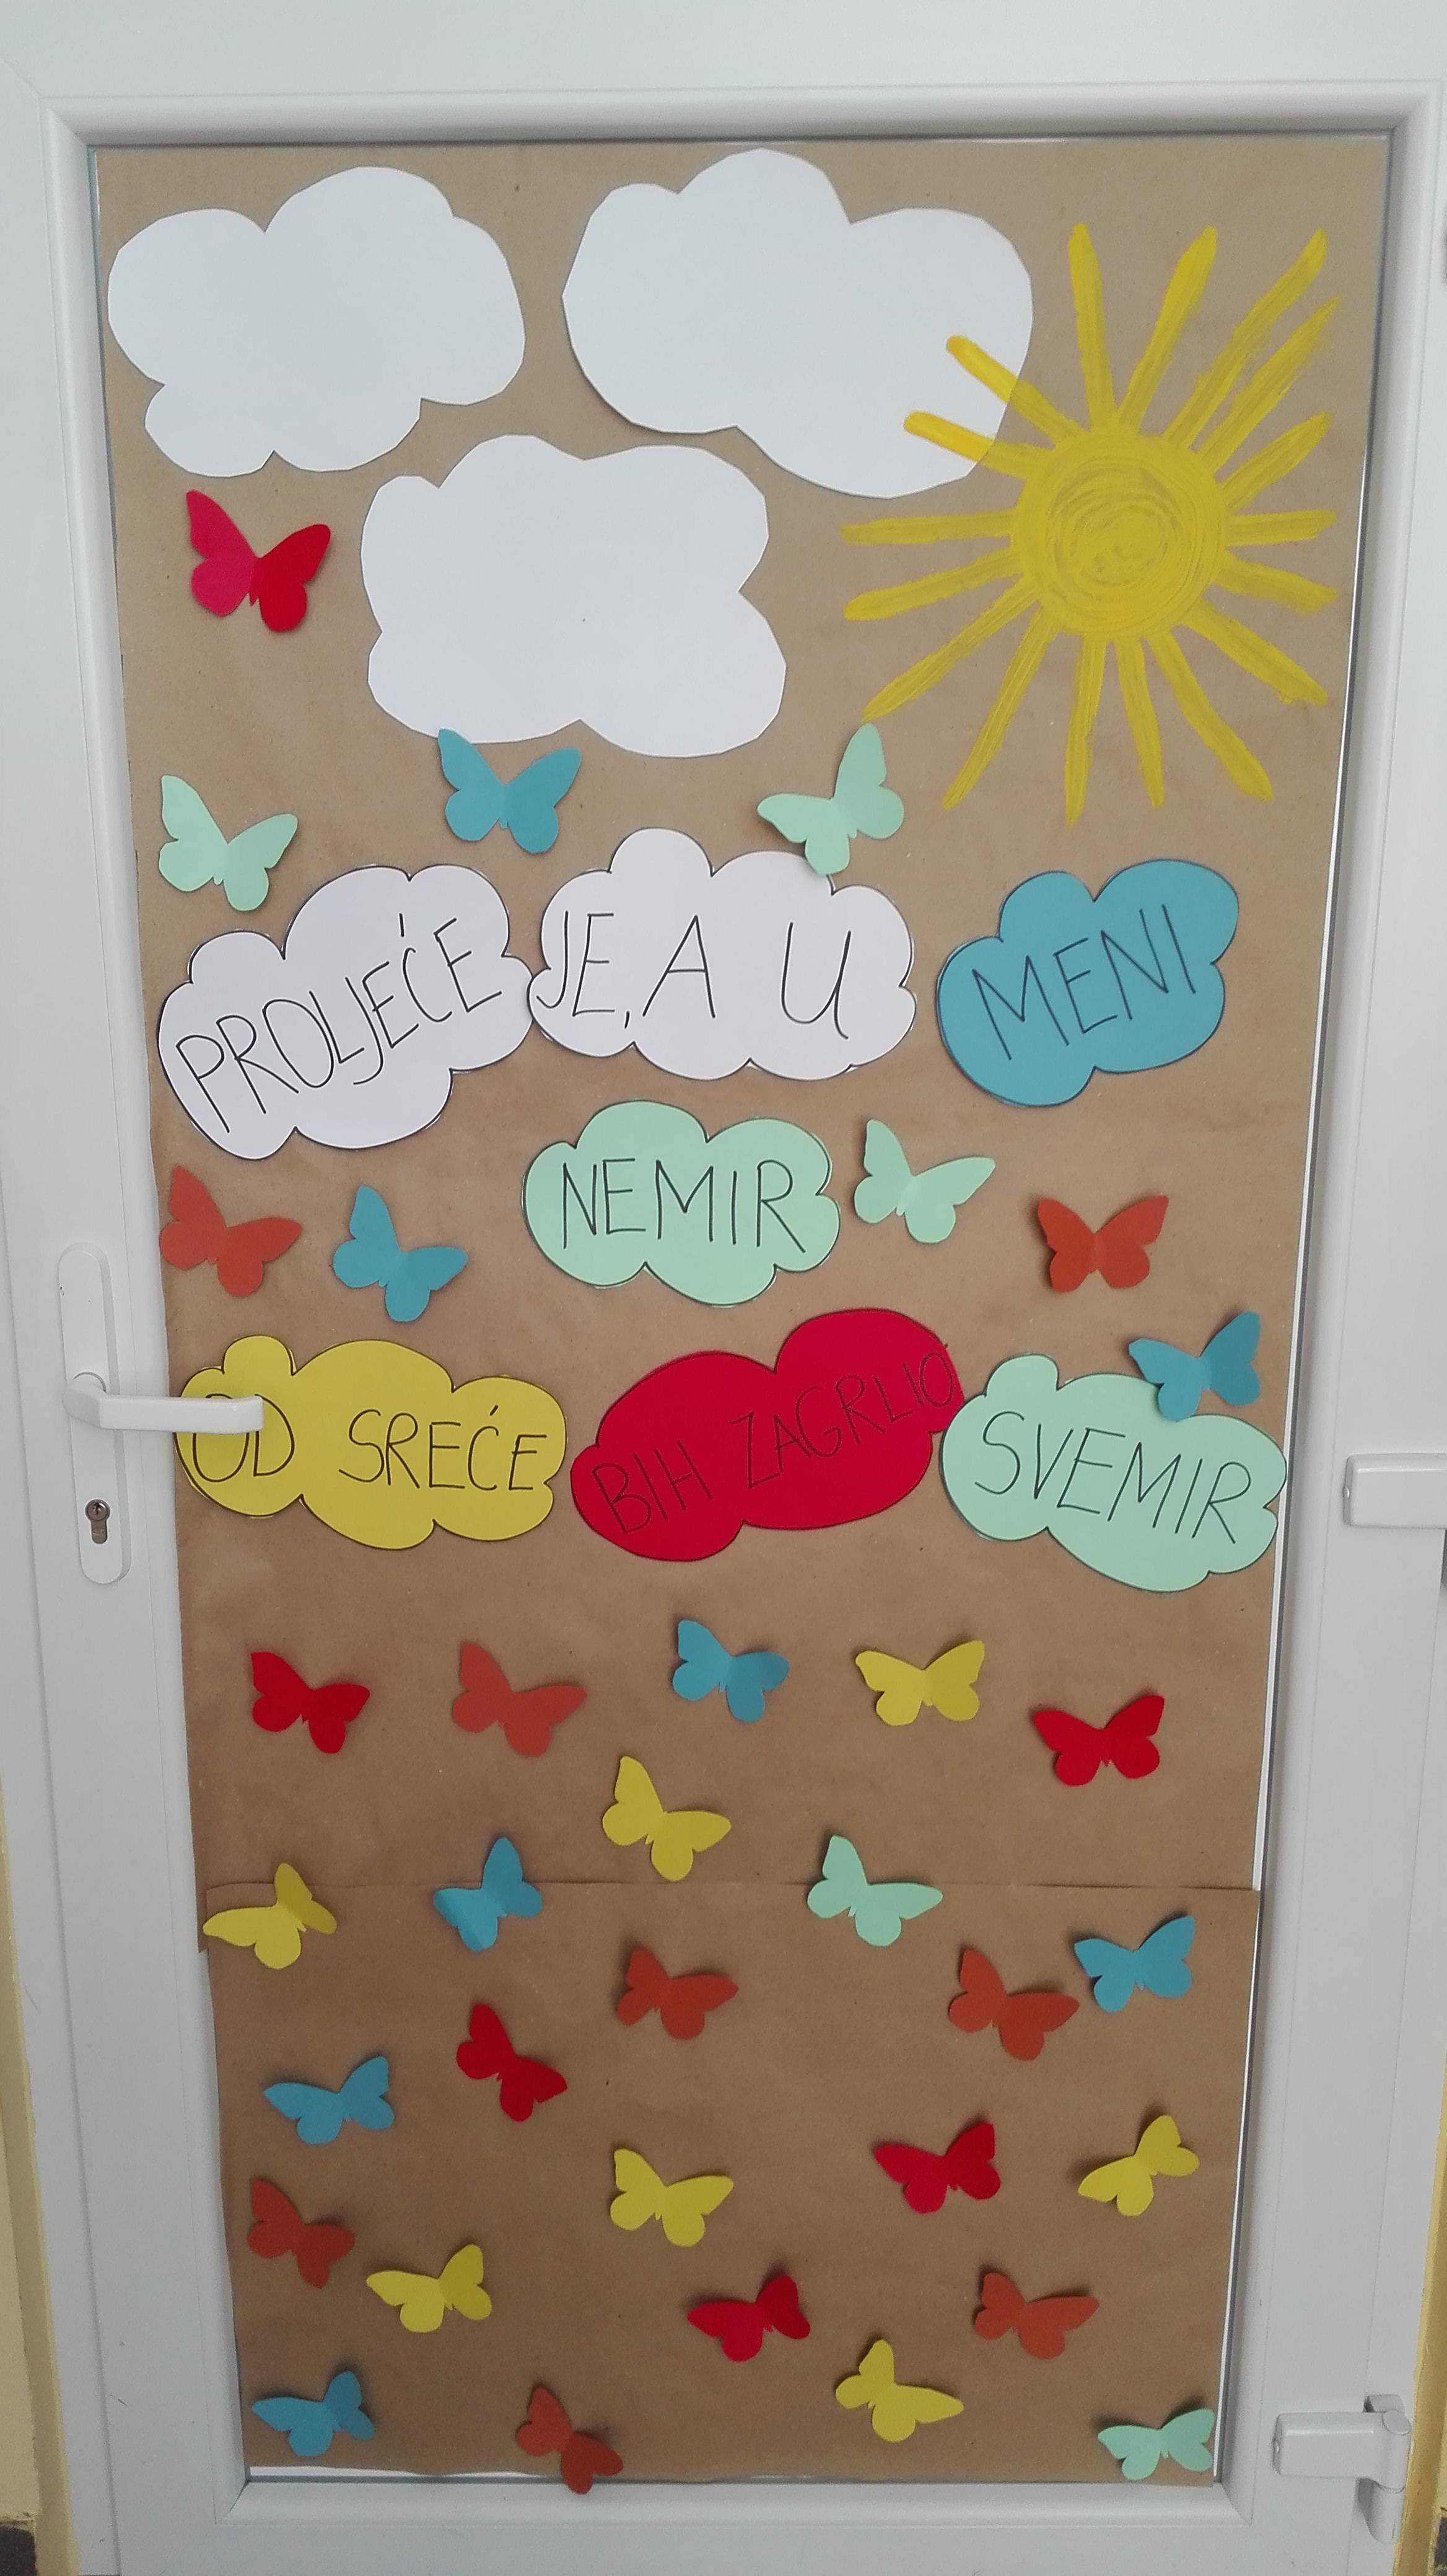 PROLJEĆE JE, A U MENI
NEMIR
OD SREĆE BIH ZAGRLIO SVEMIR